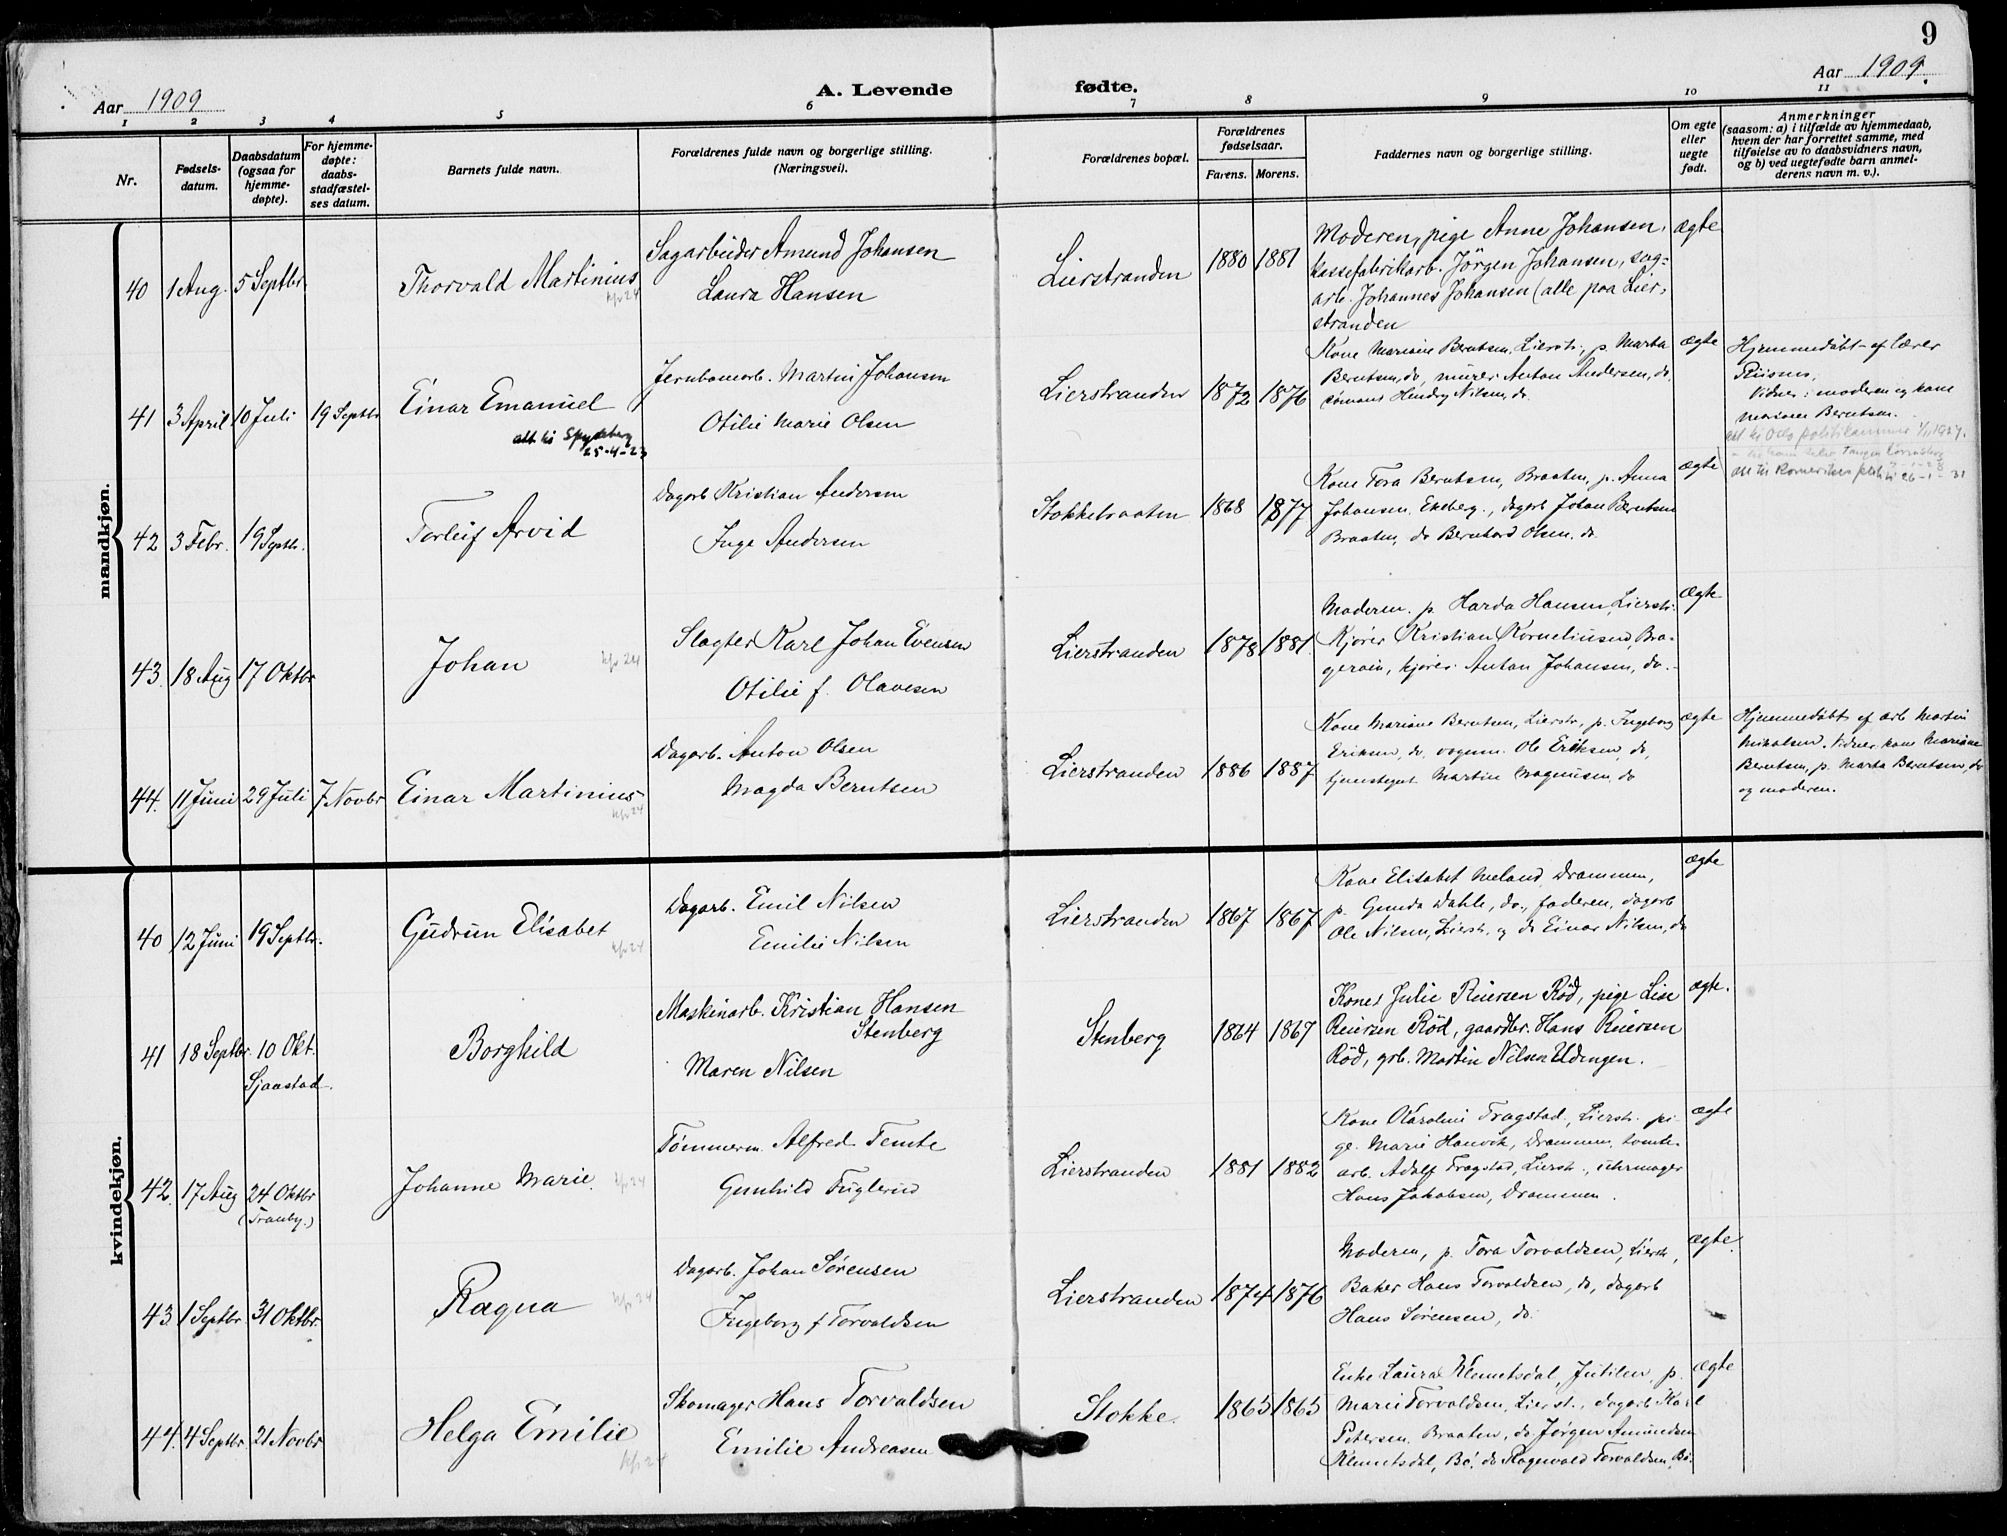 9
Aar 1909
A. Levende fødte.
Aar 1909.
1 2 3 4 5 6 7 8 9 10 11
Nr.
Fødsels-
datum.
Daabsdatum
(ogsaa for
hjemme-
døpte).
For hjemme-
døpte:
daabs-
stadfæstel-
ses datum.
Barnets fulde navn.
Forældrenes fulde navn og borgerlige stilling.
(Næringsvei).
Forældrenes bopæl.
Forældrenes
fødselsaar.
Farens. Morens.
Faddernes navn og borgerlige stilling.
Om egte
eller
uegte
født.
Anmerkninger
(saasom: a) i tilfælde av hjemmedaab,
hvem der har forrettet samme, med
tilføielse av to daabsvidners navn,
og b) ved uegtefødte barn anmel-
derens navn m. v.).
mandkjøn.
40 1 Aug. 5 Septbr.
Thorvald Martinius
Sagarbeider Amund Johansen
Laura Hansen
Lierstranden
1880 1881
Moderen, pige Anne Johansen,
kassefabrikarb. Jörgen Johansen, sag-
arb. Johannes Johansen (alle paa Lier-
stranden
ægte
41 3 April 10 Juli 19 Septbr
Einar Emanuel
att til Spydeberg
25-4-23
Jernbanearb. Martin Johansen
Otilie Marie Olsen
Lierstranden
1872 1876
Kone Mariane Berntsen, Lierstr., p. Marta
Berntsen, do, murer Anton Andersen, do,
sømand Hendry Nilsen, do.
ægte
Hjemmedöbt af lærer
Riisnes,
Vidner: moderen og kone
Mariane Berntsen.
att til Oslo politikammer
42 3 Febr. 19 Septbr.
Torleif Arvid
Dagarb Kristian Andersen
Inge Andersen
1868 1877
Kone Tora Berntsen, Braaten, p. Anna
Johansen, Ekeberg., dagarb Johan Berntsen
Braaten, do Bernhard Olsen, do.
ægte
43. 18 Aug 17 Oktbr
Johan
Slagter Karl Johan Evensen
Otilie f. Olavesen
Lierstranden
1878 1881
Moderen. p. Harda Hansen, Lierstr.
Kjører Kristian Korneliusen, Bra-
gerøen, kjører Anton Johansen, do.
ægte
44. 11 Juni 29 Juli 7 Novbr
Einar Martinius
Dagarb. Anton Olsen
Magda Berntsen
Lierstranden
1886 1887
Kone Mariane Berntsen, Lierstr, p. Ingeborg
Eriksen, do. vognm. Ole Eriksen, do,
tjenestegut Martin Magnusen, do
ægte
Hjemmedöbt af arb Martin
Mikalsen. Vidner kone Mariane
Berntsen, p. Marta Berntsen, do
og moderen.
kvindekjøn.
40 12 Juni 19 Septbr.
Gudrun Elisabet
Dagarb. Emil Nilsen
Emilie Nilsen
Lierstranden
1867 1867
Kone Elisabet Meland Drammen,
p. Gunda Dahle, do., faderen, dagarb
Ole Nilsen, Lierstr. og do Einar Nilsen, do
ægte
41 18 Septbr. 10 Okt.
Sjaastad.
Borghild
Maskinarb. Kristian Hansen
Stenberg
Maren Nilsen
Stenberg
1864 1867
Kone Julie Reiersen Röd, pige Lise
Reiersen Röd, gaardbr. Hans Reiersen
Röd, grb. Martin Nilsen Udengen.
ægte.
42. 17 Aug 24 Oktbr
(Tranby.)
Johanne Marie.
Tømmerm Alfred Temte
Gunhild Fuglerud
Lierstranden
1881 1882
Kone Karoline Tragstad, Lierstr. pi-
ge. Marie Hanvik, Drammen, tomte-
arb. Adolf Tragstad, Lierstr., uhrmager
Hans Jakobsen, Drammen.
ægte
43 1 Septbr. 31 Oktbr.
Ragna
Dagarb. Johan Sørensen
Ingeborg f Torvaldsen
Lierstranden
1874 1876
Moderen, p. Tora Torvaldsen, Lierstr,
Baker Hans Torvaldsen, do, dagarb
Hans Sørensen, do.
ægte.
44. 4 Septbr. 21 Novbr
Helga Emilie
Skomager Hans Torvaldsen
Emilie Andreasen
Stokke.
1865 1865
Enke Laura Klemetsdal, Jutilen, p.
Marie Torvaldsen, Lierst., dagarb Karl
Petersen, Braaten, do Jørgen Amundsen
Klemetsdal, Bö, do Ragnvald Torvaldsen, Bö.
ægte